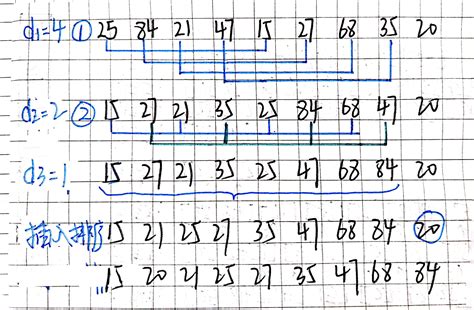 d₁=4 ① 25 84 21 47 15 27 68 35 20
d₂=2 ② 15 27 21 35 25 84 68 47 20
d₃=1 15 27 21 35 25 47 68 84 20
插入排序 15 21 25 27 35 47 68 84 20
15 20 21 25 27 35 47 68 84